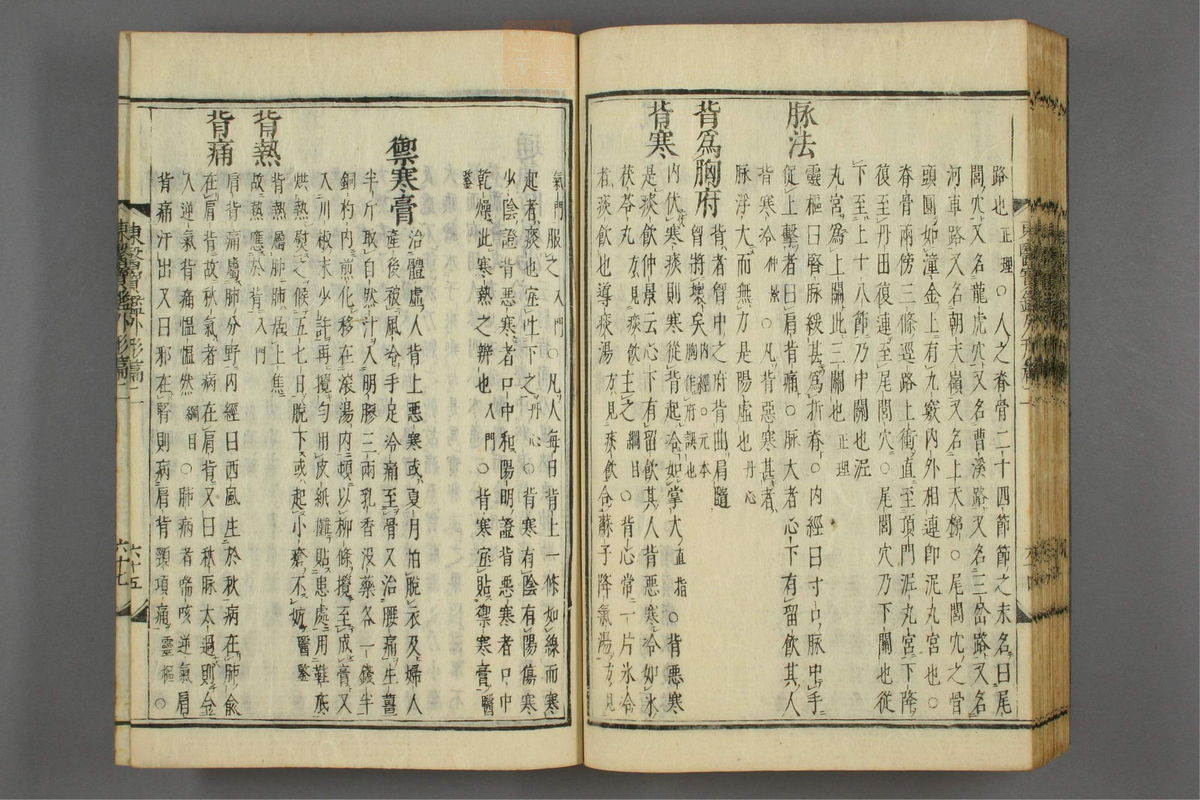 路也正理○人之脊骨二十四節節之末名曰尾
閭穴又名龍虎穴又名曹溪路又名三岔路又名
河車路又名朝天嶺又名上天梯○尾閭穴之骨
頭圓如潼金上有九竅內外相連卽泥丸宮也○
脊骨兩傍三條逕路上衝直至頂門泥丸宮下降
復至丹田復連至尾閭穴○尾閭穴乃下關也從
下至上十八節乃中關也泥
丸宮爲上關此三關也正理
脉法
靈樞曰腎脉緩甚爲折脊○內經曰寸口脉中手
促上擊者曰肩背痛○脉大者心下有留飮其人
背寒冷仲景○凡背惡寒甚者
脉浮大而無力是陽虛也丹心
背爲胸府
背者胷中之府背曲肩隨
府將壞矣內經○元本胸作府誤也
背寒
內伏寒痰則寒從背起冷如掌大直指○背惡寒
是痰飮仲景云心下有留飮其人背惡寒冷如氷
茯苓丸方見痰飮主之綱目○背心常一片氷冷
者痰飮也導痰湯方見痰飮合蘇子降氣湯方見
氣門服之入門○凡人每日背上一條如線而寒
起者痰也宜吐下之丹心○背寒有陰有陽傷寒
少陰證背惡寒者口中和陽明證背惡寒者口中
乾燥此寒熱之辨也入門○背寒宜貼禦寒膏醫
鑒
禦寒膏
治體虛人背上惡寒或夏月怕脫衣及婦人
產後被風冷手足冷痛至骨又治腰痛生薑
半斤取自然汁入明膠三兩乳香沒藥各一錢半
銅杓內煎化移在滾湯內頓以柳條攪至成膏又
入川椒末少許再攪勻用皮紙攤貼患處用鞋底
烘熱熨之候五七日脫下或起小瘡不妨醫鑒
背熱
背熱屬肺肺居上焦
故熱應於背入門
背痛
肩背痛屬肺分野內經曰西風生於秋病在肺兪
在肩背故秋氣者病在肩背又曰秋脉太過則令
人逆氣背痛慍慍然綱目○肺病者喘咳逆氣肩
背痛汗出又曰邪在腎則病肩背頸項痛靈樞○
東醫寶鑑外形篇二
六十五